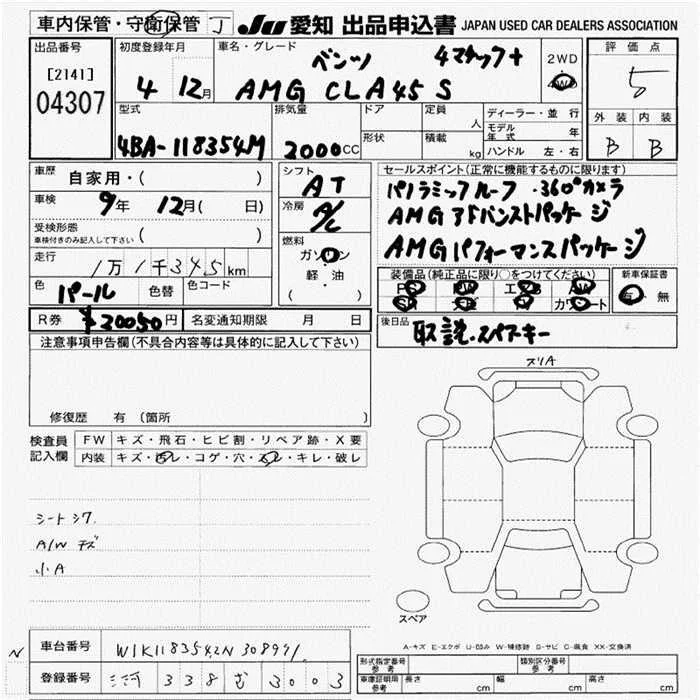 車内保管・守衛保管 J JU 愛知 出品申込書 JAPAN USED CAR DEALERS ASSOCIATION
出品番号 [2141] 04307
初度登録年月 4 12月
車名・グレード ベンツ 4マチック+
AMG CLA45 S
2WD 4WD
評価点 5
外装 内装
B B
型式 4BA-118354M
排気量 2000CC
ドア 形状
定員 人
積載 kg
ディーラー・並行
モデル年式 年
ハンドル 左・右
車歴 自家用・( )
車検 9年 12月( 日)
受検形態 ( )
車検付きのみ記入して下さい
走行 1万1千345km
色 パール 色替 色コード
R券 ¥20050円 名変通知期限 月 日
シフト AT
冷房 A/C
燃料 ガソリン
軽・油
( )
セールスポイント(正常に機能するものに限ります)
パノラミックルーフ・360°カメラ
AMGアドバンストパッケージ
AMGパフォーマンスパッケージ
装備品(純正品に限り○をつけてください) 新車保証書
PS PW エアB AW
SR ナビ カワシート
有・無
後日品 取説・スペアキー
注意事項申告欄(不具合内容等は具体的に記入して下さい)
修復歴 有(箇所 )
検査員記入欄
FW キズ・飛石・ヒビ割・リペア跡・X要
内装 キズ・汚レ・コゲ・穴・スレ・キレ・破レ
シートシワ
A/W キズ
小A
スリA
スペア
A-キズ E-エクボ U-凹み W-補修跡 S-サビ C-腐食 XX-交換済
N 車台番号 W1K1183542N308991
登録番号 三河 338 む 3003
形式指定番号 参考 類別区分番号 参考
車庫証明用 参考 長さ cm 幅 cm 高さ cm